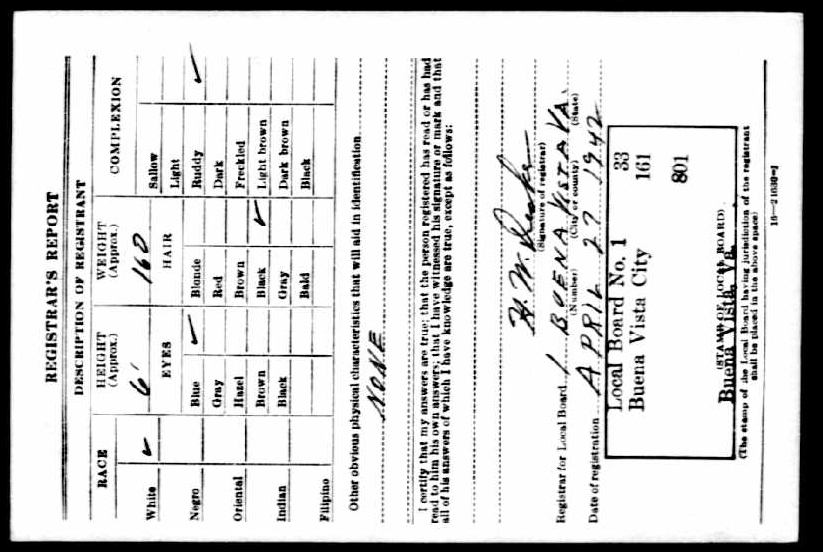 REGISTRAR'S REPORT
DESCRIPTION OF REGISTRANT
RACE HEIGHT (Approx.) WEIGHT (Approx.) COMPLEXION
White ✓ 6' 160 Sallow
EYES HAIR Light
Negro Blue ✓ Blonde Ruddy ✓
Gray Red Dark
Oriental Hazel Brown Freckled
Brown Black ✓ Light brown
Indian Black Gray Dark brown
Bald Black
Filipino
Other obvious physical characteristics that will aid in identification
NONE
I certify that my answers are true; that the person registered has read or has had
read to him his own answers; that I have witnessed his signature or mark and that
all of his answers of which I have knowledge are true, except as follows:
H. W.
(Signature of registrar)
Registrar for Local Board 1 BUENA VISTA VA.
(Number) (City or county) (State)
Date of registration APRIL 27 1942
Local Board No. 1 33
Buena Vista City 161
801
(STAMP OF LOCAL BOARD)
Buena Vista, Va.
(The stamp of the Local Board having jurisdiction of the registrant
shall be placed in the above space)
16—21630-1